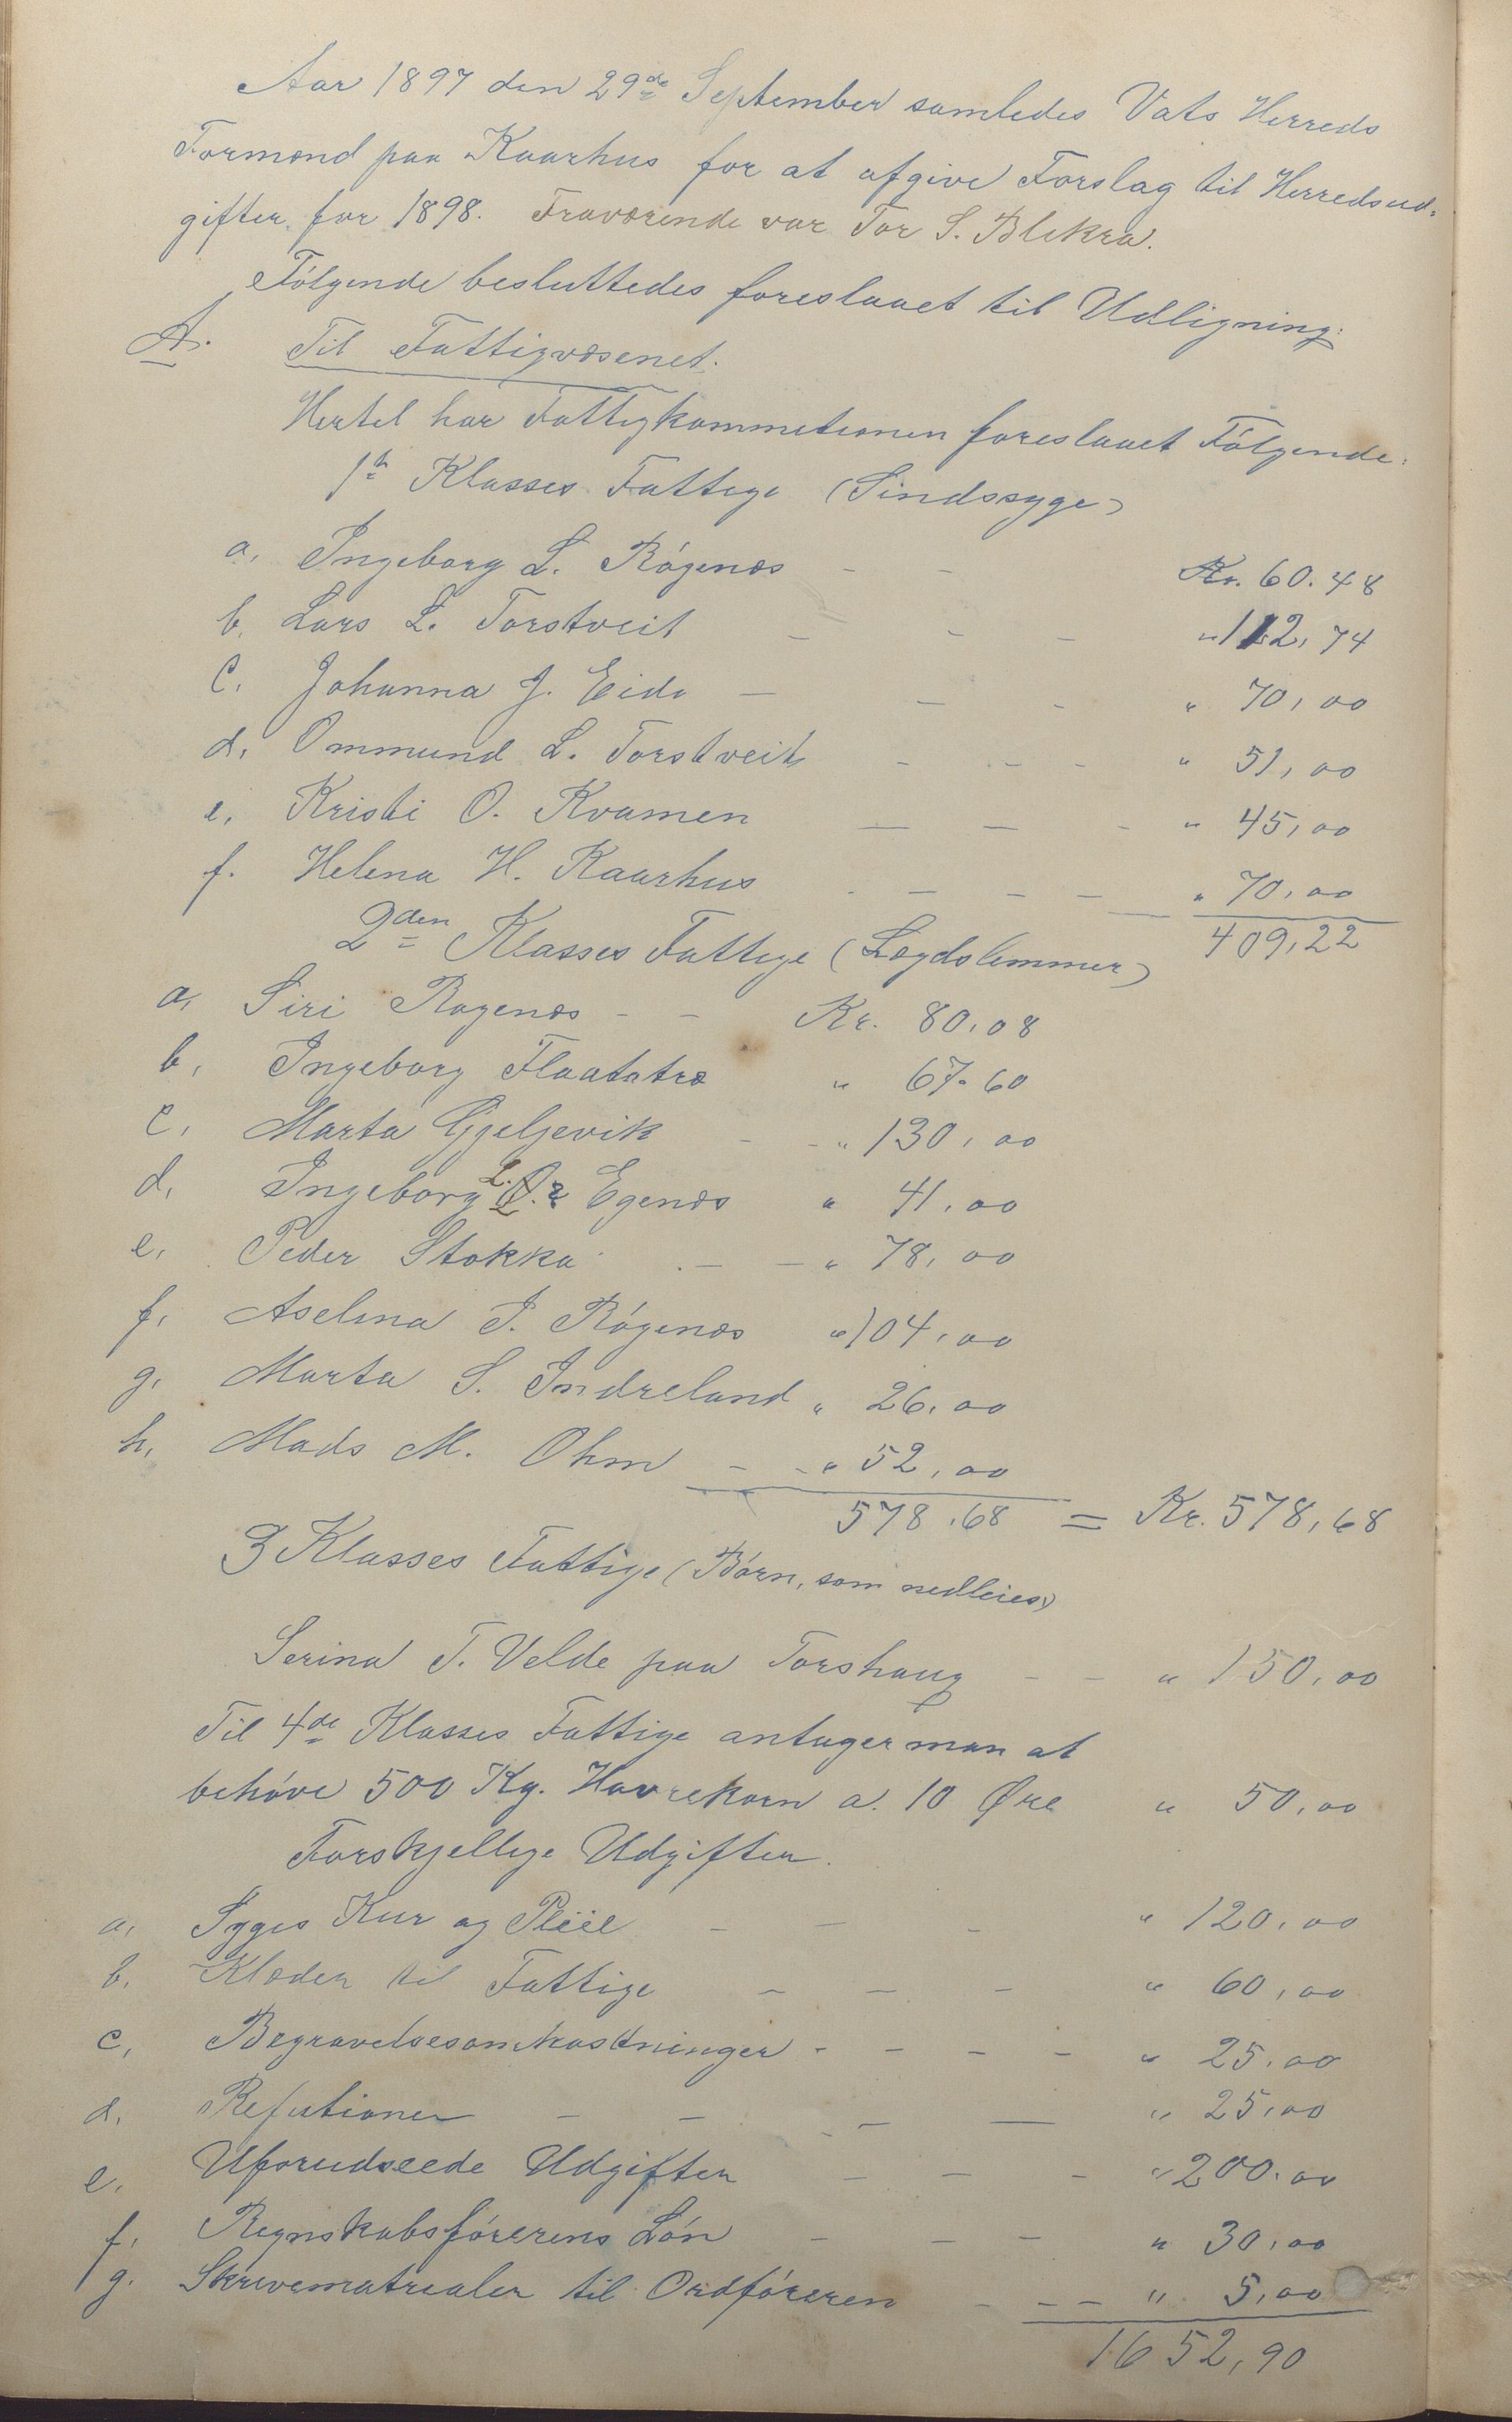 Aar 1897 den 29de September samledes Vats Herreds
Formænd paa Kaarhus for at afgive Forslag til Herredsud-
gifter for 1898. Fraværende var Tor S. Blikra.
Følgende besluttedes foreslaaet til Udligning:
A. Til Fattigvæsenet.
Hertil har Fattigkommitionen foreslaaet Følgende:
1ste Klasses Fattige (Sindssyge)
a. Ingeborg L. Røgenæs - - Kr. 60.48
b. Lars L. Torstveit - - - " 112,74
C. Johanna J. Eide - - - " 70,00
d. Ommund L. Torstveit - - - " 51,00
e. Kristi O. Kvamen - - - " 45,00
f. Helena H. Kaarhus - - - - " 70,00
409,22
2den Klasses Fattige (Lægdslemmer)
a, Siri Røgenæs - - Kr. 80,08
b, Ingeborg Flaatatræ " 67.60
c, Marta Gjeljevik - - " 130,00
d, Ingeborg L. Egenæs " 41,00
e, Peder Stokka - - " 78,00
f, Aselina P. Røgenæs " 104,00
g, Marta S. Indreland " 26,00
h, Mads M. Ohm - - " 52,00
578,68 = Kr. 578,68
3 Klasses Fattige (Børn, som nedleies)
Serina T. Velde paa Torshaug - - " 150,00
Til 4de Klasses Fattige antager man at
behøve 500 Kg. Havrekorn a. 10 Øre " 50,00
Forskjellige Udgifter.
a, Syges Kur og Pleie - - - " 120,00
b. Klæder til Fattige - - - " 60,00
c, Begravelsesomkostninger - - - - " 25,00
d, Refutioner - - - - " 25,00
e. Uforudseede Udgifter - - - " 200.00
f, Regnskabsførerens Løn - - - " 30,00
g. Skrivematrialer til Ordføreren - - - " 5,00
1652,90